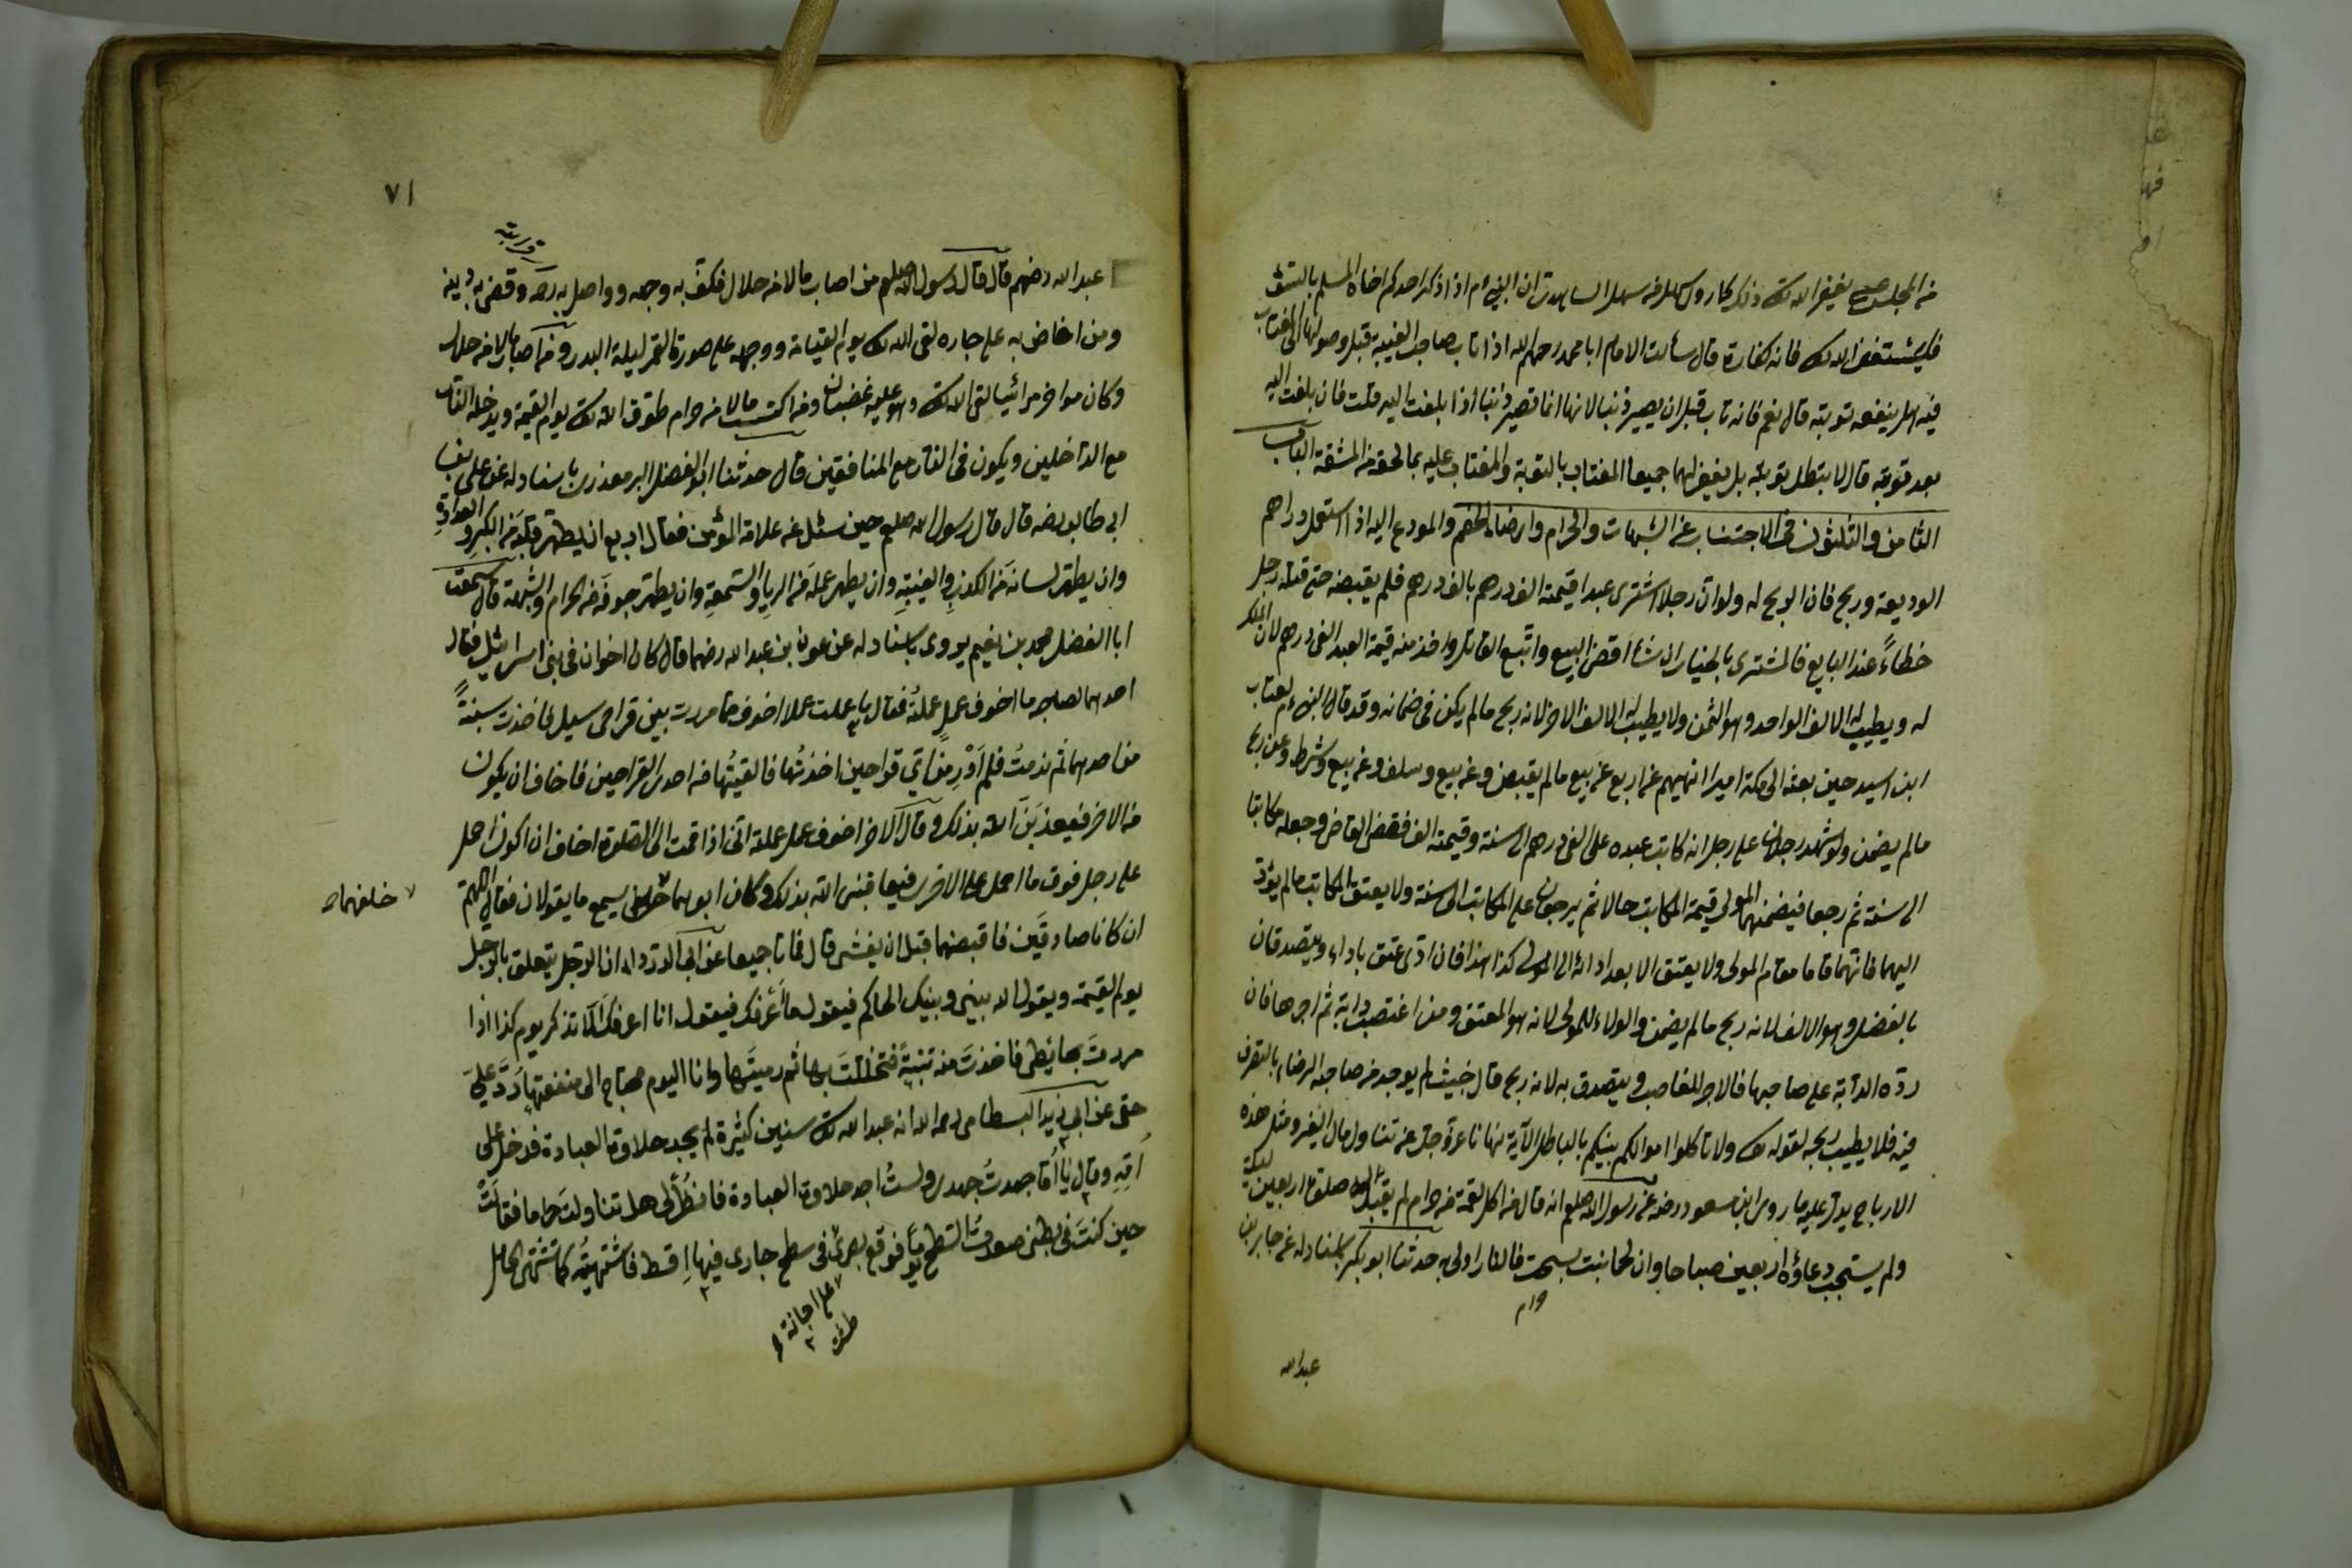 من المجلس حتى يغفر الله تعالى وذلك كما روى سهل بن سهل الساعدي ان النبي ءم اذا ذكر احدكم اخاه المسلم بالسوء
فليستغفر الله تعالى فانه كفارة قال سألت الامام ابا محمد رحمه الله اذا تاب صاحب الغيبة قبل وصولها الى المغتاب
فيه هل ينفعه توبته قال نعم فانه تاب قبل ان يصير ذنبا لانها انما تصير ذنبا اذا بلغت اليه قلت فان بلغت اليه
بعد توبته قال لا يبطل توبته بل يغفر لهما جميعا المغتاب بالتوبة والمغتاب عليه بما لحقه من المشقة الباب
الثامن والثلثون فى الاجتناب عن الشبهات والحرام وارضاء الخصم والمودع اليه اذا استعمل دراهم
الوديعة وربح فان الربح له ولو ان رجلا اشترى عبدا قيمته الف درهم بالف درهم فلم يقبضه حتى قتله رجل
خطاءً عند البايع فالمشترى بالخيار ان شاء اقض البيع واتبع القاتل واخذ منه قيمة العبد الف درهم لان الملك
له ويطيب له الالف الواحد وهو الثمن ولا يطيب له الالف الاخر لانه ربح مالم يكن فى ضمانه وقد قال النبى ءم لعتاب
ابن اسيد حين بعثه الى مكة اميرا انهيهم عن اربع عن بيع مالم يقبض وعن بيع وسلف وعن بيع وشرط وعن ربح
مالم يضمن ولو شهد رجلان على رجل انه كاتب عبده على الف درهم الى سنة وقيمته الف فقضى القاضى وجعله مكاتبا
الى سنة ثم رجعا فيضمنهما المولى قيمة المكاتب حالا ثم يرجعون على المكاتب الى سنة ولا يعتق المكاتب مالم يؤد
اليهما فانهما قاما مقام المولى ولا يعتق الا بعد ادائه الى المولى كذا هذا فان ادى عتق باداء ويتصدقان
بالفضل وهو الالف لانه ربح مالم يضمن والولاء للمولى لانه هو المعتق ومن اغتصب دابة ثم اجرها فان
رد الدابة على صاحبها فالاجر للغاصب ويتصدق به لانه ربح مال خبيث لم يوجد من صاحبه الرضاء بالتصرف
فيه فلا يطيب ربحه لقوله تعالى ولا تاكلوا اموالكم بينكم بالباطل الآية نهانا عز وجل عن تناول مال الغير ومثل هذه
الارباح يدل عليه ما روى ابن مسعود رضه عن رسول الله صلعم انه قال من اكل لقمة من حرام لم يقبل له صلوة اربعين ليلة
ولم يستجب دعاؤه اربعين صباحا وان لحما نبت بسحت فالنار اولى به حدثنا ابو بكر باسناد له عن جابر بن
عبد الله
٧١
عبد الله رضهم قال قال رسول الله صلعم من اصاب مالا من حلال فكف به وجهه وواصل به رحمه وقضى به دينه
ومن افاض به على جاره لقى الله تعالى يوم القيامة ووجهه على صورة القمر ليلة البدر ومن اصاب مالا من حلال
وكان مفاخرا مرائيا لقى الله تعالى وهو عليه غضبان ومن اكتسب مالا من حرام طوق الله تعالى يوم القيمة ويدخله النار
مع الداخلين ويكون فى النار مع المنافقين قال حدثنا ابو الفضل باسناد له عن على بن
ابى طالب رضه قال قال رسول الله صلعم حين سئل عن علامة المؤمن فقال اربع ان يطهر قلبه من الكبر والعداوة
وان يطهر لسانه من الكذب والغيبة وان يطهر عمله من الرياء والسمعة وان يطهر جوفه من الحرام والشبهة قال سمعت
ابا الفضل محمد بن نعيم يروى باسناد له عن عون بن عبد الله رضهما قال كان اخوان فى بنى اسرائيل فقال
احدهما لصاحبه ما اخوف عمل عملته فقال ما عملت عملا اخوف مما مررت بين قراحى سبيل فاخذت سنبلة
من احدهما ثم ندمت فلم ادر من اى قراحين اخذتها فالقيتها فى احدى القراحين فاخاف ان يكون
من الاخر فيعذبنى الله بذلك وقال الاخر اخوف عمل عملته اننى اذا قمت الى الصلوة اخاف ان اكون احمل
على رجل فوق ما احمل على الاخرى فيعاقبنى الله بذلك وكان ابوهما يسمع ما يقولان فقال اللهم
خلفهما
ان كانا صادقين فاقبضهما قبل ان يفتتنا قال فماتا جميعا عن ابى الدرداء ان الرجل يتعلق بالرجل
يوم القيمة ويقول الله بينى وبينك الحاكم فيقول ما أعرفك فيقول انا اعرفك اما تذكر يوم كذا اذا
مررت بحائطى فاخذت منه تبنة فتخللت بها ثم رميتها وانا اليوم محتاج الى منفعتها رد على
حتى عن ابى يزيد البسطامى رحمه الله انه عبد الله تعالى سنين كثيرة لم يجد حلاوة العبادة فدخل على
امه وقال يا اماه جهدت جهدى ولست اجد حلاوة العبادة فانظرى هل تناولت حراما فقالت
حين كنت فى بطنى صعدت السطح يوما فوقع بصرى فى سطح جارى فيها اقط فاشتهيته كما تشتهى الحامل
على اجانة